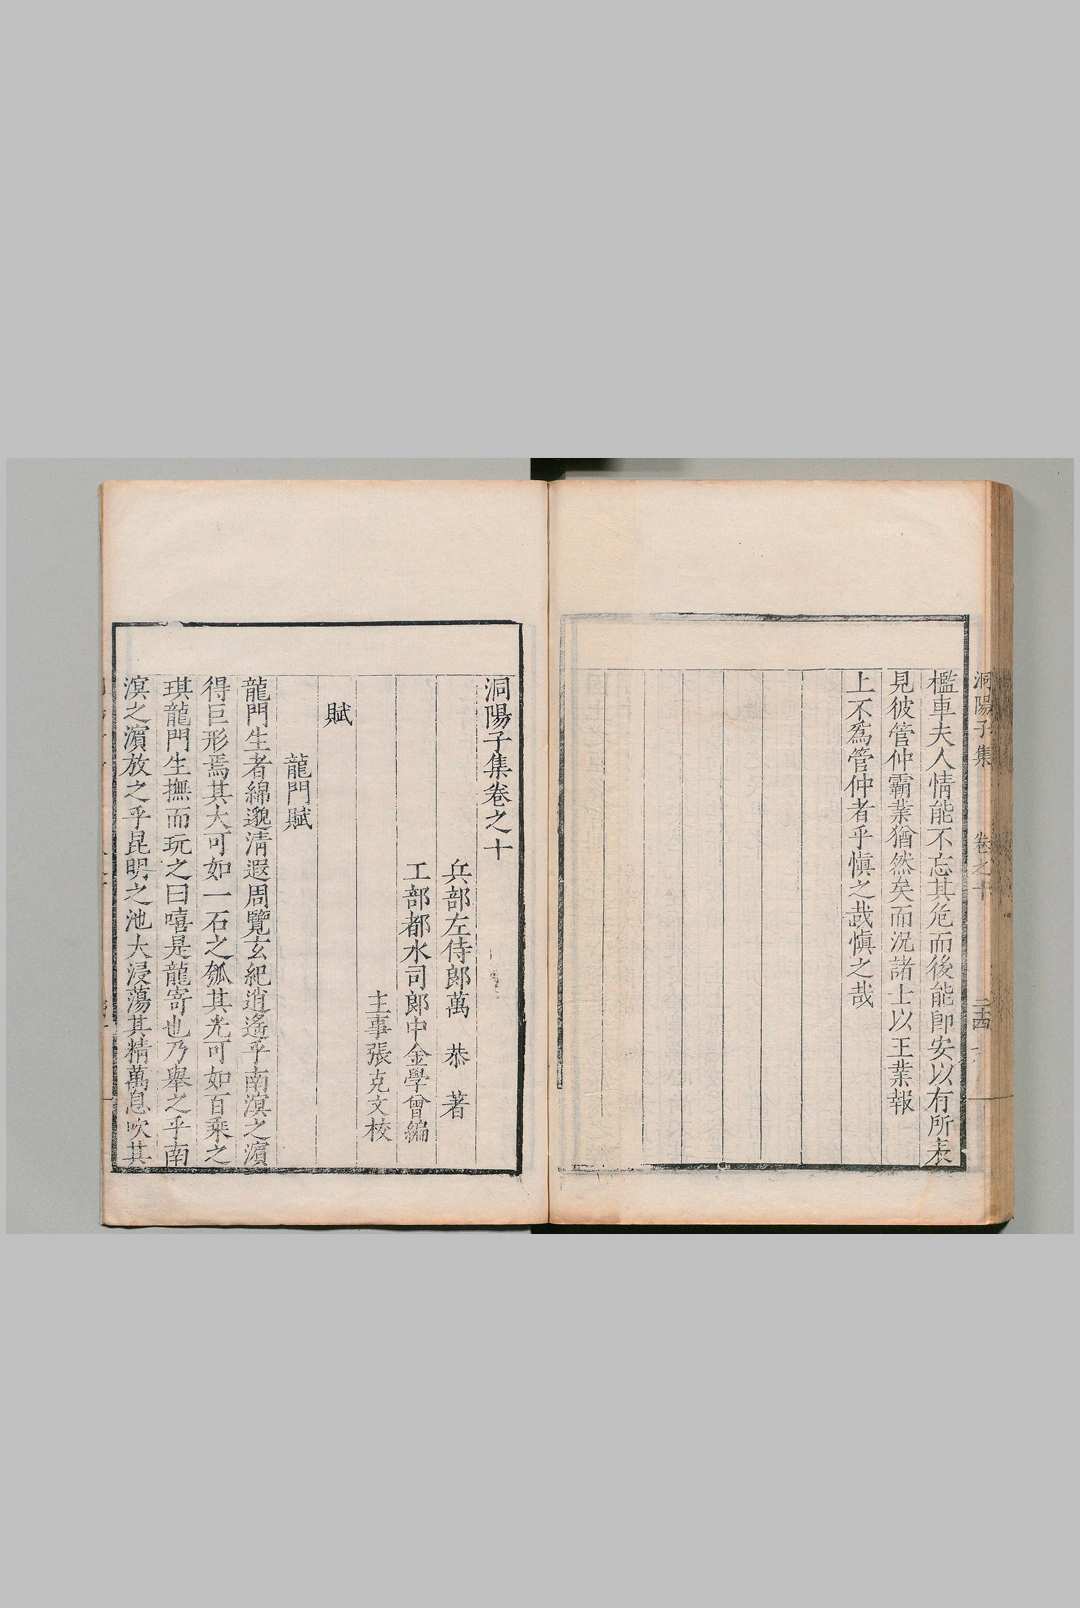 洞陽子集 卷之十
檻車夫人情能不忘其危而後能卽安以有所表
見彼管仲霸業猶然矣而況諸士以王業報
上不爲管仲者乎愼之哉愼之哉
洞陽子集卷之十
兵部左侍郞萬 恭 著
工部都水司郞中金學曾編
主事張克文校
賦
龍門賦
龍門生者綿邈淸遐周覽玄紀逍遙乎南溟之濱
得巨形焉其大可如一石之瓠其光可如百乘之
琪龍門生撫而玩之曰嘻是龍寄也乃舉之乎南
溟之濱放之乎昆明之池大浸蕩其精萬息吹其